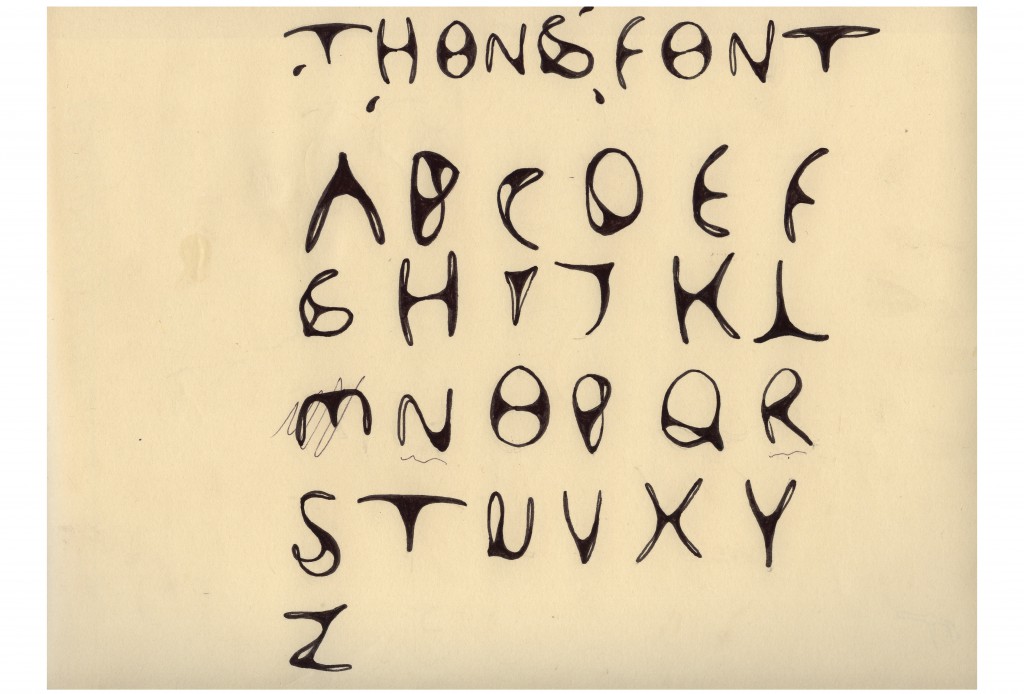 THONSFONT
A B C D E F
G H I J K L
M N O P Q R
S T U V X Y
Z